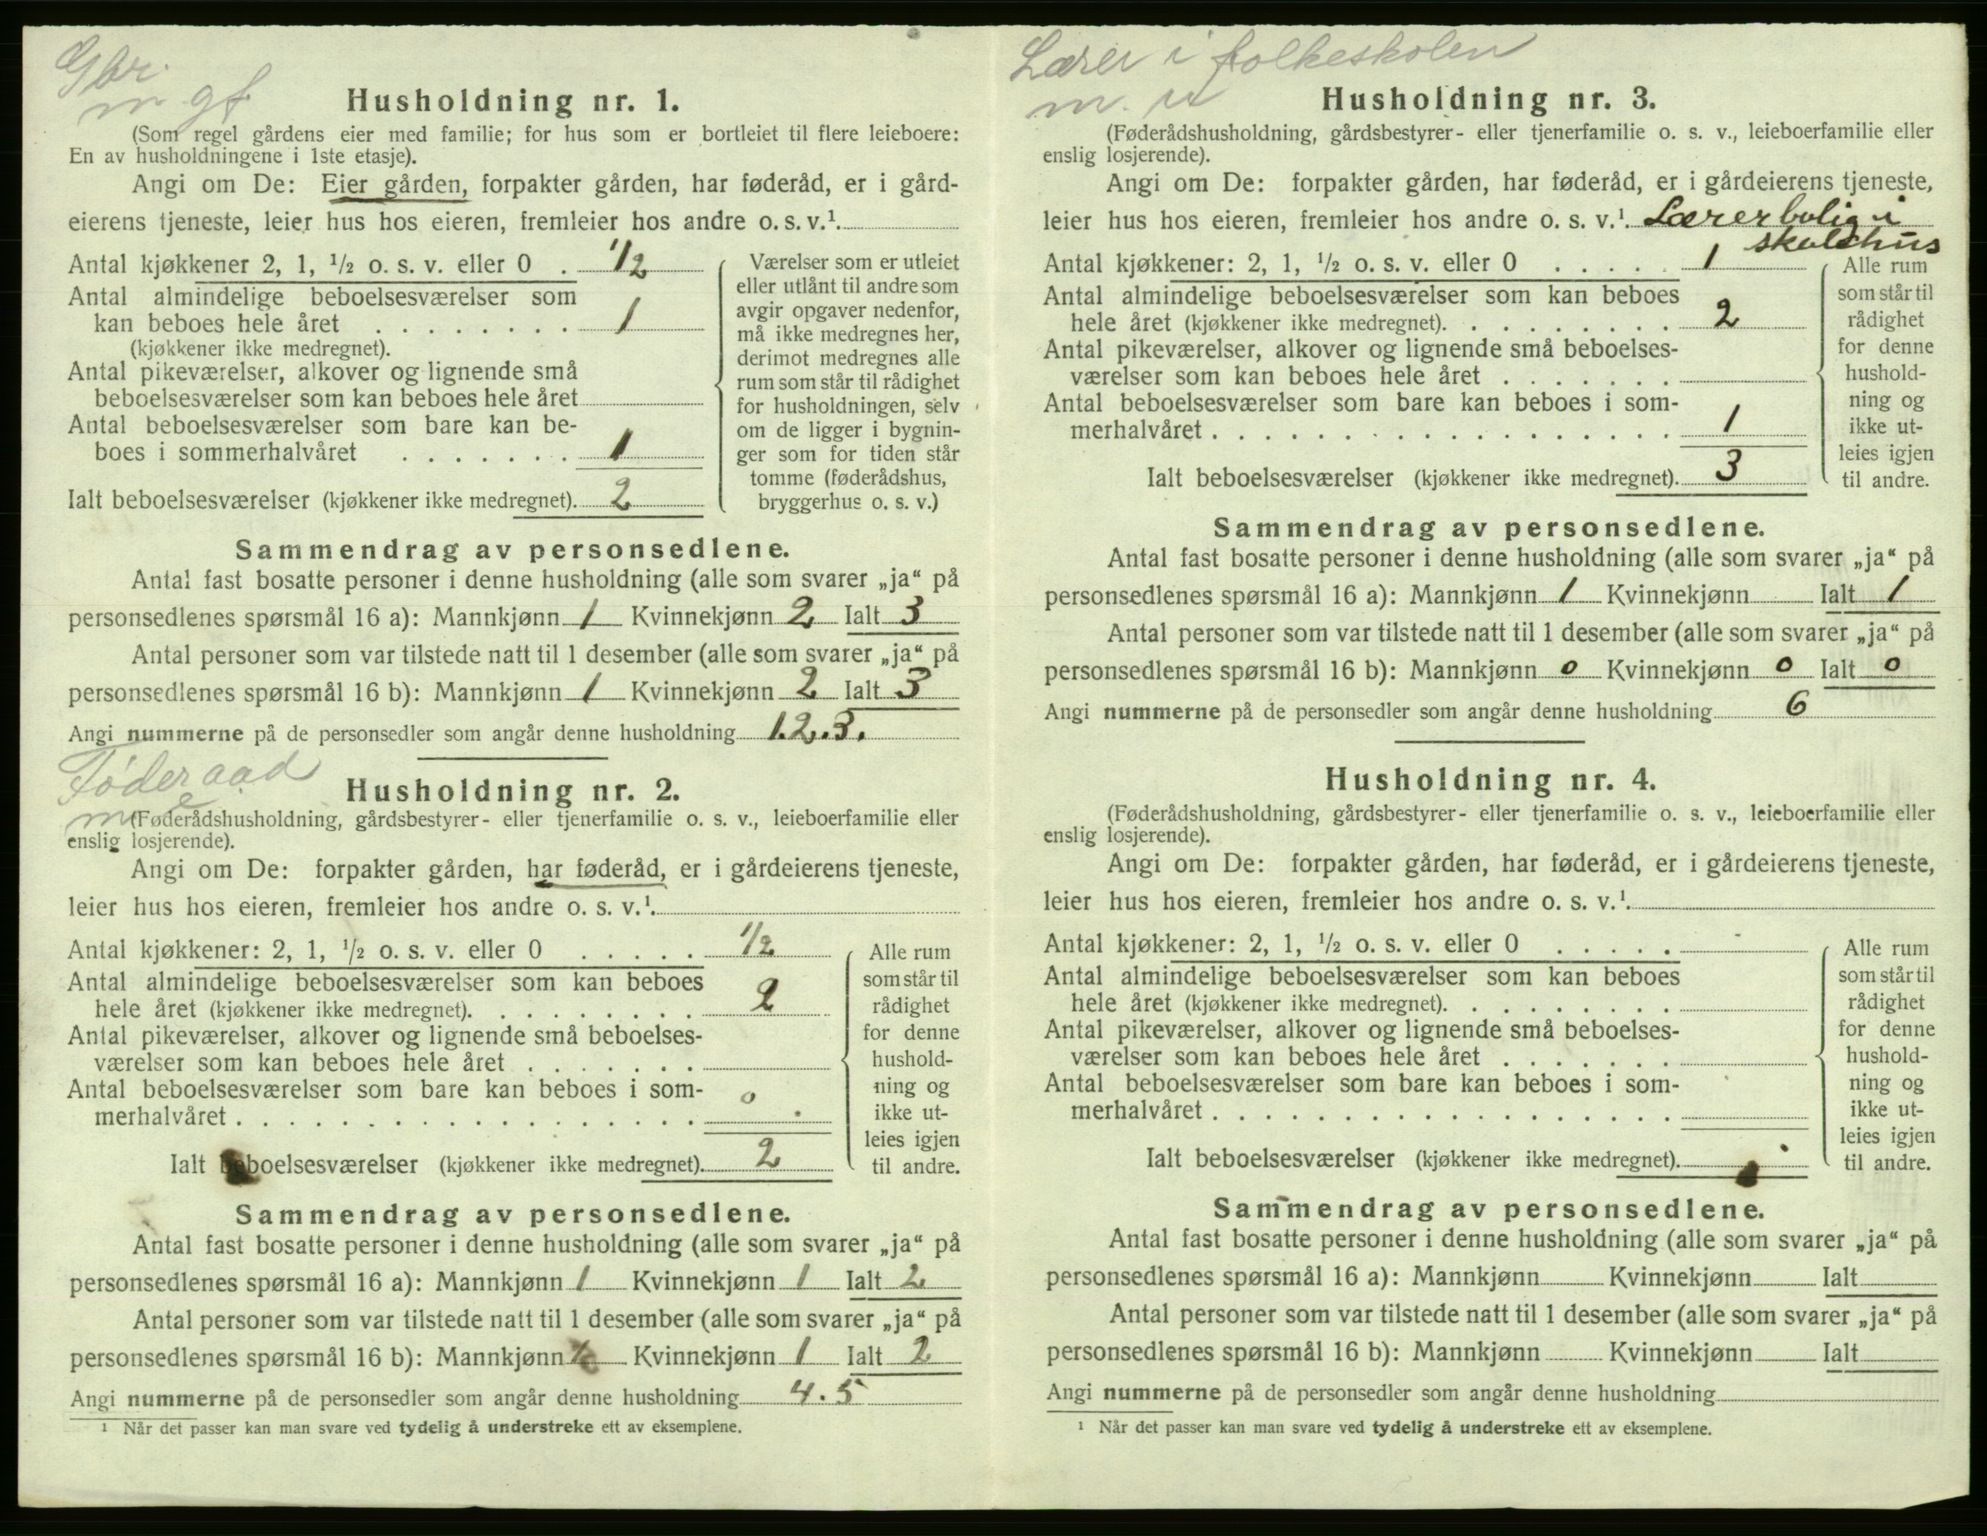 Gbr.
m gf
Husholdning nr. 1.
(Som regel gårdens eier med familie; for hus som er bortleiet til flere leieboere:
En av husholdningene i 1ste etasje).
Angi om De: Eier gården, forpakter gården, har føderåd, er i gård-
eierens tjeneste, leier hus hos eieren, fremleier hos andre o. s. v.¹
Antal kjøkkener 2, 1, ½ o. s. v. eller 0 . 1/2
Antal almindelige beboelsesværelser som
kan beboes hele året . . . . . . . . 1
(kjøkkener ikke medregnet).
Antal pikeværelser, alkover og lignende små
beboelsesværelser som kan beboes hele året
Antal beboelsesværelser som bare kan be-
boes i sommerhalvåret . . . . . . . 1
Ialt beboelsesværelser (kjøkkener ikke medregnet). 2
Værelser som er utleiet
eller utlånt til andre som
avgir opgaver nedenfor,
må ikke medregnes her,
derimot medregnes alle
rum som står til rådighet
for husholdningen, selv
om de ligger i bygnin-
ger som for tiden står
tomme (føderådshus,
bryggerhus o. s. v.)
Sammendrag av personsedlene.
Antal fast bosatte personer i denne husholdning (alle som svarer „ja“ på
personsedlenes spørsmål 16 a): Mannkjønn 1 Kvinnekjønn 2 Ialt 3
Antal personer som var tilstede natt til 1 desember (alle som svarer „ja“ på
personsedlenes spørsmål 16 b): Mannkjønn 1 Kvinnekjønn 2 Ialt 3
Angi nummerne på de personsedler som angår denne husholdning 1.2.3.
Føderaad
m e
Husholdning nr. 2.
(Føderådshusholdning, gårdsbestyrer- eller tjenerfamilie o. s. v., leieboerfamilie eller
enslig losjerende).
Angi om De: forpakter gården, har føderåd, er i gårdeierens tjeneste,
leier hus hos eieren, fremleier hos andre o. s. v.¹.
Antal kjøkkener: 2, 1, ½ o. s. v. eller 0 . . . . . 1/2
Antal almindelige beboelsesværelser som kan beboes
hele året (kjøkkener ikke medregnet). . . . . . . . . 2
Antal pikeværelser, alkover og lignende små beboelses-
værelser som kan beboes hele året . . . . . . .
Antal beboelsesværelser som bare kan beboes i som-
merhalvåret . . . . . . . . . . . . . . . . . . 0
Ialt beboelsesværelser (kjøkkener ikke medregnet). 2
Alle rum
som står til
rådighet
for denne
hushold-
ning og
ikke ut-
leies igjen
til andre.
Sammendrag av personsedlene.
Antal fast bosatte personer i denne husholdning (alle som svarer „ja“ på
personsedlenes spørsmål 16 a): Mannkjønn 1 Kvinnekjønn 1 Ialt 2
Antal personer som var tilstede natt til 1 desember (alle som svarer „ja“ på
personsedlenes spørsmål 16 b): Mannkjønn Kvinnekjønn 1 Ialt 2
Angi nummerne på de personsedler som angår denne husholdning 4.5
¹ Når det passer kan man svare ved tydelig å understreke ett av eksemplene.
Lærer i folkeskolen
m. u
Husholdning nr. 3.
(Føderådshusholdning, gårdsbestyrer- eller tjenerfamilie o. s. v., leieboerfamilie eller
enslig losjerende).
Angi om De: forpakter gården, har føderåd, er i gårdeierens tjeneste,
leier hus hos eieren, fremleier hos andre o. s. v.¹. Lærerbolig i
skolehus
Antal kjøkkener: 2, 1, ½ o. s. v. eller 0 . . . . . 1
Antal almindelige beboelsesværelser som kan beboes
hele året (kjøkkener ikke medregnet). . . . . . . . . 2
Antal pikeværelser, alkover og lignende små beboelses-
værelser som kan beboes hele året . . . . . . .
Antal beboelsesværelser som bare kan beboes i som-
merhalvåret . . . . . . . . . . . . . . . . . . 1
Ialt beboelsesværelser (kjøkkener ikke medregnet). 3
Alle rum
som står til
rådighet
for denne
hushold-
ning og
ikke ut-
leies igjen
til andre.
Sammendrag av personsedlene.
Antal fast bosatte personer i denne husholdning (alle som svarer „ja“ på
personsedlenes spørsmål 16 a): Mannkjønn 1 Kvinnekjønn Ialt 1
Antal personer som var tilstede natt til 1 desember (alle som svarer „ja“ på
personsedlenes spørsmål 16 b): Mannkjønn 0 Kvinnekjønn 0 Ialt 0
Angi nummerne på de personsedler som angår denne husholdning 6
Husholdning nr. 4.
(Føderådshusholdning, gårdsbestyrer- eller tjenerfamilie o. s. v., leieboerfamilie eller
enslig losjerende).
Angi om De: forpakter gården, har føderåd, er i gårdeierens tjeneste,
leier hus hos eieren, fremleier hos andre o. s. v.¹.
Antal kjøkkener: 2, 1, ½ o. s. v. eller 0 . . . . .
Antal almindelige beboelsesværelser som kan beboes
hele året (kjøkkener ikke medregnet). . . . . . . . .
Antal pikeværelser, alkover og lignende små beboelses-
værelser som kan beboes hele året . . . . . . .
Antal beboelsesværelser som bare kan beboes i som-
merhalvåret . . . . . . . . . . . . . . . . . .
Ialt beboelsesværelser (kjøkkener ikke medregnet).
Alle rum
som står til
rådighet
for denne
hushold-
ning og
ikke ut-
leies igjen
til andre.
Sammendrag av personsedlene.
Antal fast bosatte personer i denne husholdning (alle som svarer „ja“ på
personsedlenes spørsmål 16 a): Mannkjønn Kvinnekjønn Ialt
Antal personer som var tilstede natt til 1 desember (alle som svarer „ja“ på
personsedlenes spørsmål 16 b): Mannkjønn Kvinnekjønn Ialt
Angi nummerne på de personsedler som angår denne husholdning
¹ Når det passer kan man svare ved tydelig å understreke ett av eksemplene.